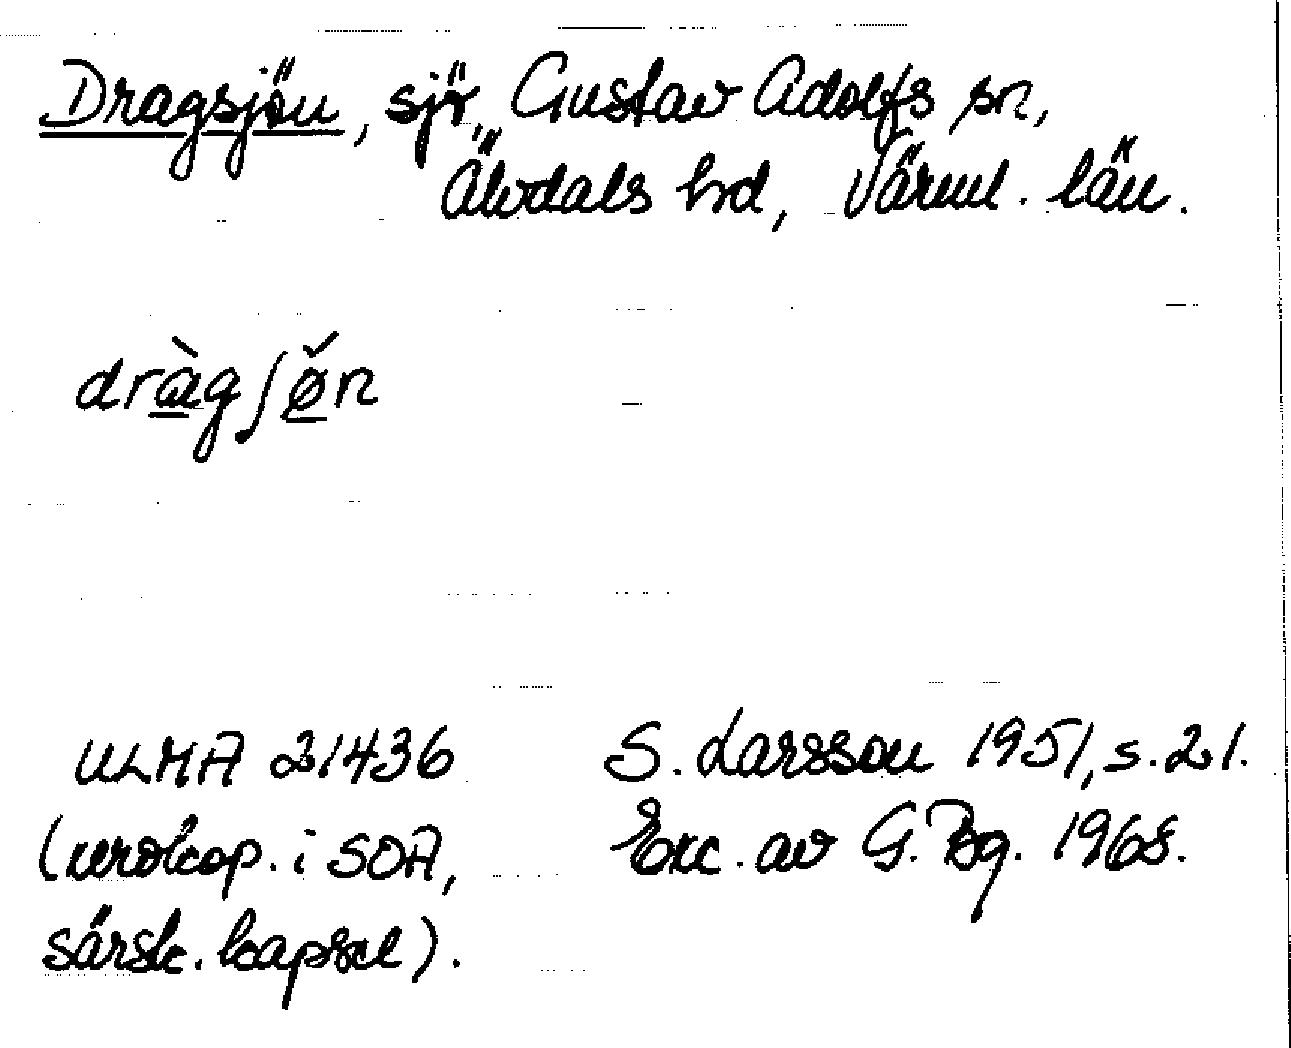 Dragsjön, sjö, Gustav Adolfs sn,
Älvdals hd, Värml. län.
dràgʃø̌n
ULMA 21436 S. Larsson 1951, s. 21.
(xerokop. i SOA, Exc. av G. Bg. 1968.
särsk. kapsel).